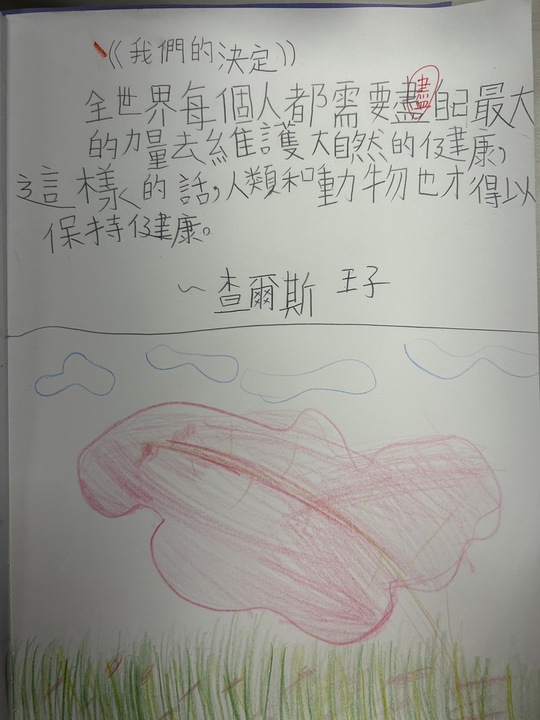 《我們的決定》
全世界每個人都需要盡自己最大
的力量去維護大自然的健康，
這樣的話，人類和動物也才得以
保持健康。
~查爾斯 王子